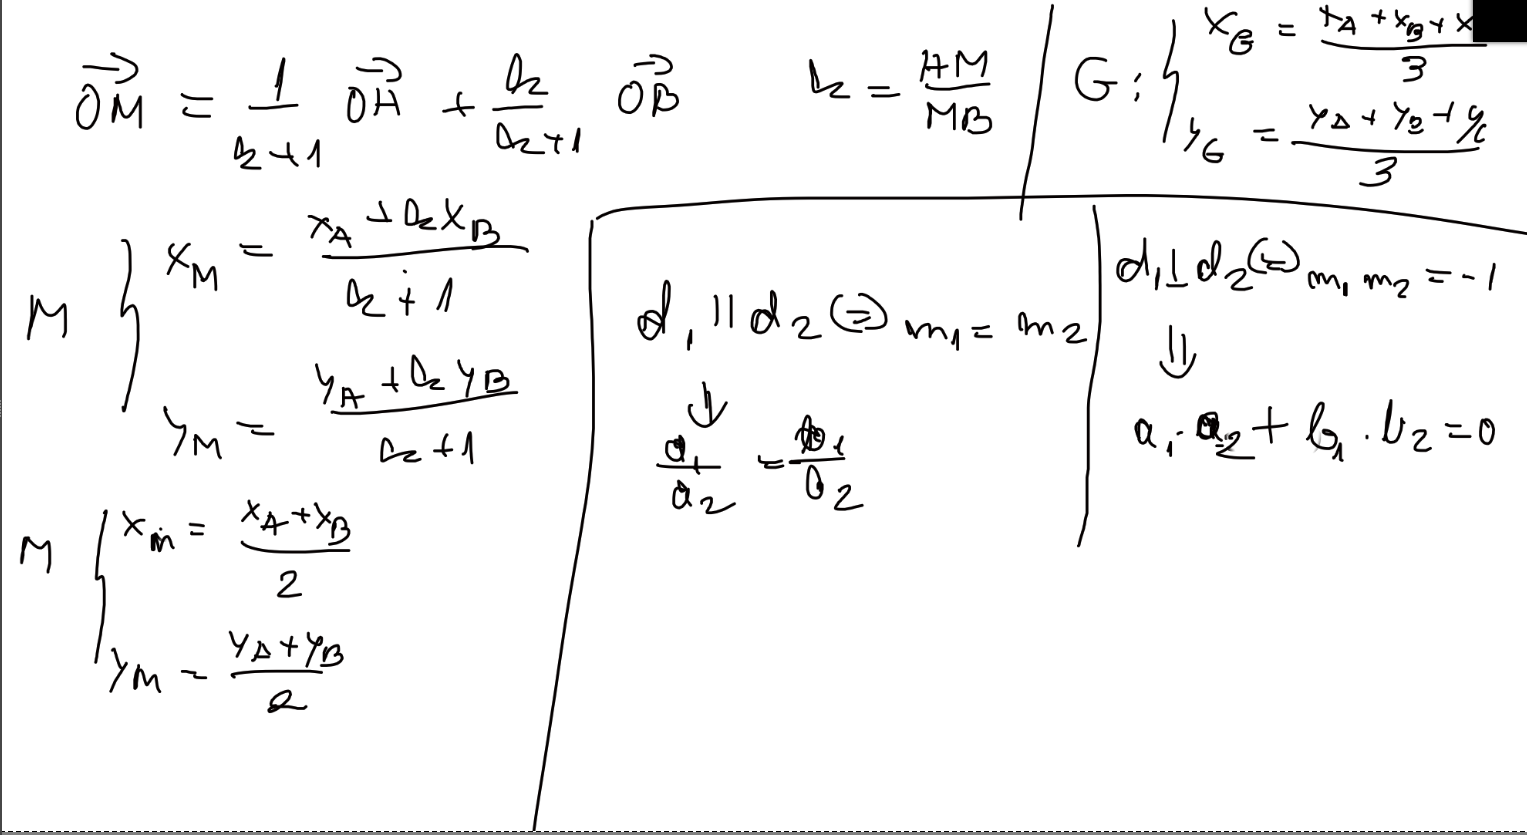 →OM = 1/(k+1) →OA + k/(k+1) →OB
k = AM/MB
G: { x_G = (x_A + x_B + x)/3
y_G = (y_A + y_B + y_C)/3
M { x_M = (x_A + k x_B)/(k+1)
y_M = (y_A + k y_B)/(k+1)
M { x_m = (x_A + x_B)/2
y_M = (y_A + y_B)/2
d_1 || d_2 (=) m_1 = m_2
⇓
a_1/a_2 = b_1/b_2
d_1 ⊥ d_2 (=) m_1 m_2 = -1
⇓
a_1 · a_2 + b_1 · b_2 = 0